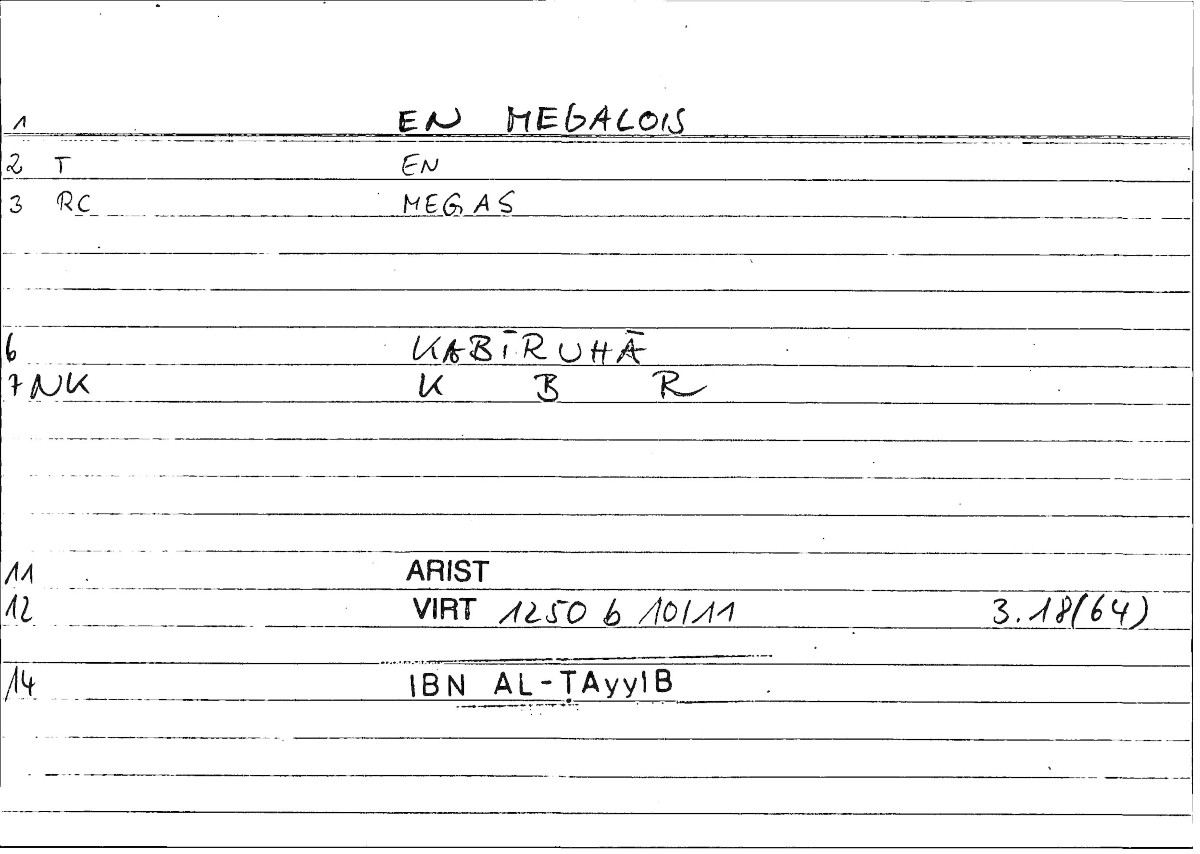 1 EN MEGALOIS
2 T EN
3 RC MEGAS
6 KABĪRUHĀ
7 NK K B R
11 ARIST
12 VIRT 1250 b 10/11 3.18(64)
14 IBN AL-ṬAyyIB